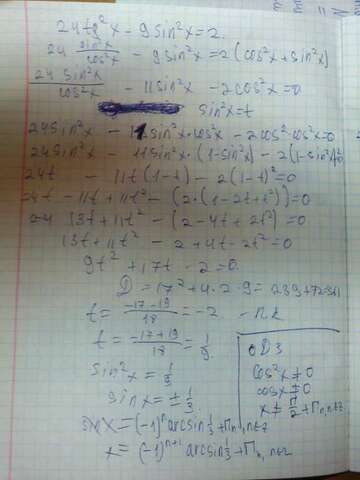 24tg²x - 9sin²x = 2.
24 sin²x/cos²x - 9sin²x = 2(cos²x + sin²x)
24 sin²x/cos²x - 11sin²x - 2cos²x = 0
sin²x = t
24sin²x - 11sin²x·cos²x - 2cos²x·cos²x = 0
24sin²x - 11sin²x·(1-sin²x) - 2(1-sin²x)²=0
24t - 11t(1-t) - 2(1-t)² = 0
24t - 11t + 11t² - (2·(1-2t+t²)) = 0
13t + 11t² - (2-4t+2t²) = 0
13t + 11t² - 2 + 4t - 2t² = 0
9t² + 17t - 2 = 0.
D = 17² + 4·2·9 = 289+72=361
t = -17-19/18 = -2 - п.к
t = -17+19/18 = 1/9
sin²x = 1/9
sinx = ± 1/3.
x = (-1)ⁿ arcsin 1/3 + Пn, n∈z
x = (-1)ⁿ⁺¹ arcsin 1/3 + Пn, n∈z
ОДЗ
cos²x ≠ 0
cosx ≠ 0
x ≠ П/2 + Пn, n∈z